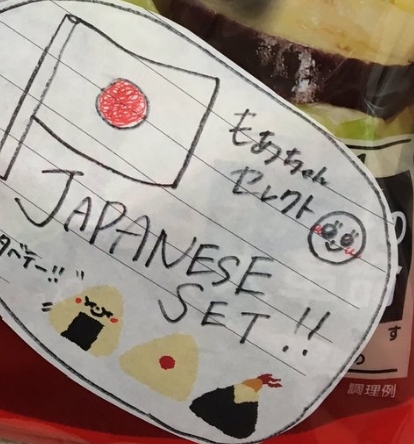 もあちゃん
セレクト
JAPANESE
SET!!
タベテー!!
す
調理例